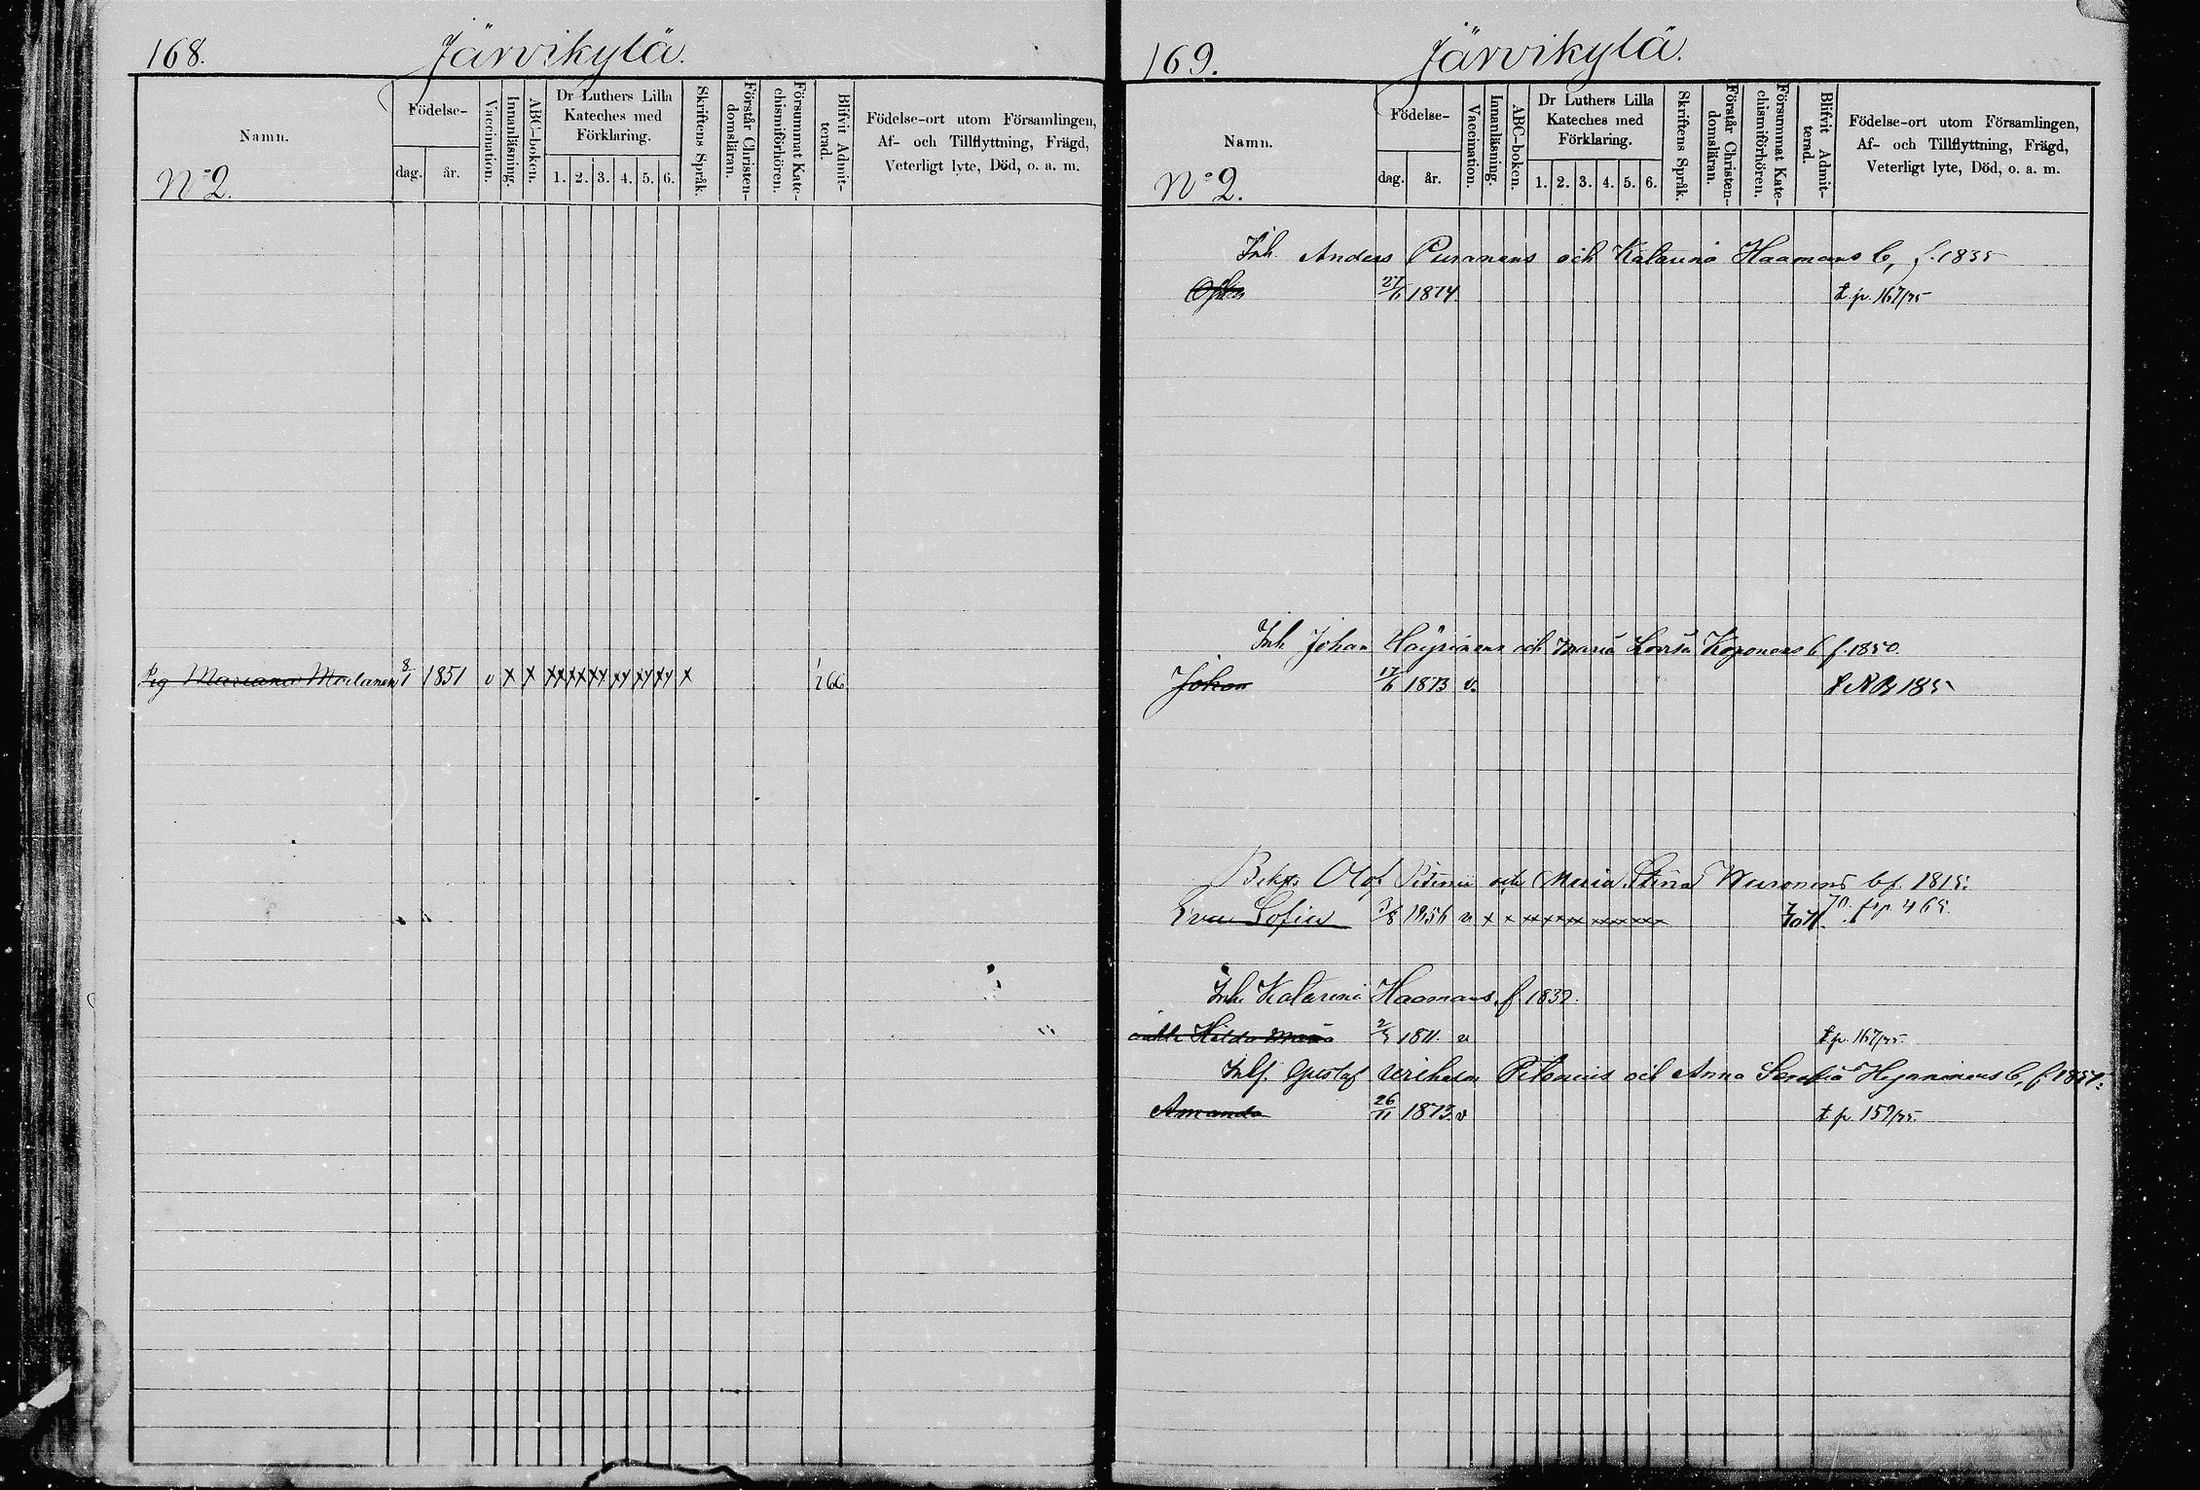 168.
Järvikylä.
Namn.
No 2.
Födelse-
dag. år.
Vaccination.
Innanläsning.
ABC-boken.
Dr Luthers Lilla Kateches med Förklaring.
1. 2. 3. 4. 5. 6.
Skriftens Språk.
Förstår Christen-domsläran.
Försummat Kate-chismiförhören.
Blifvit Admit-terad.
Födelse-ort utom Församlingen,
Af- och Tillflyttning, Frägd,
Veterligt lyte, Död, o. a. m.
Pig Mariana Moilanen 8/1 1851 v x x xx xx xx xx xx xx x 1/7 66
169.
Järvikylä.
Namn.
No 2.
Födelse-
dag. år.
Vaccination.
Innanläsning.
ABC-boken.
Dr Luthers Lilla Kateches med Förklaring.
1. 2. 3. 4. 5. 6.
Skriftens Språk.
Förstår Christen-domsläran.
Försummat Kate-chismiförhören.
Blifvit Admit-terad.
Födelse-ort utom Församlingen,
Af- och Tillflyttning, Frägd,
Veterligt lyte, Död, o. a. m.
Inh. Anders Puranens och Katarina Haamans b, f. 1835
1874. t. p. 167/75
Inh Johan och Maria Lovisa b f. 1850.
Johan 17/6 1873 v.
Olof Pitenii och Maria Stina Wuronens b f. 1815.
Eva Sofia 3/8 1856 v x x xx xx xx xx xx xx p 465.
Inh. Katarina Haamans f 1832.
Hilda Maria v t. p. 167/75
Gustaf Wilhelm Pitenius och Anna Hynninens b, f. 1851.
Amanda 26/11 1873. v t. p. 159/75